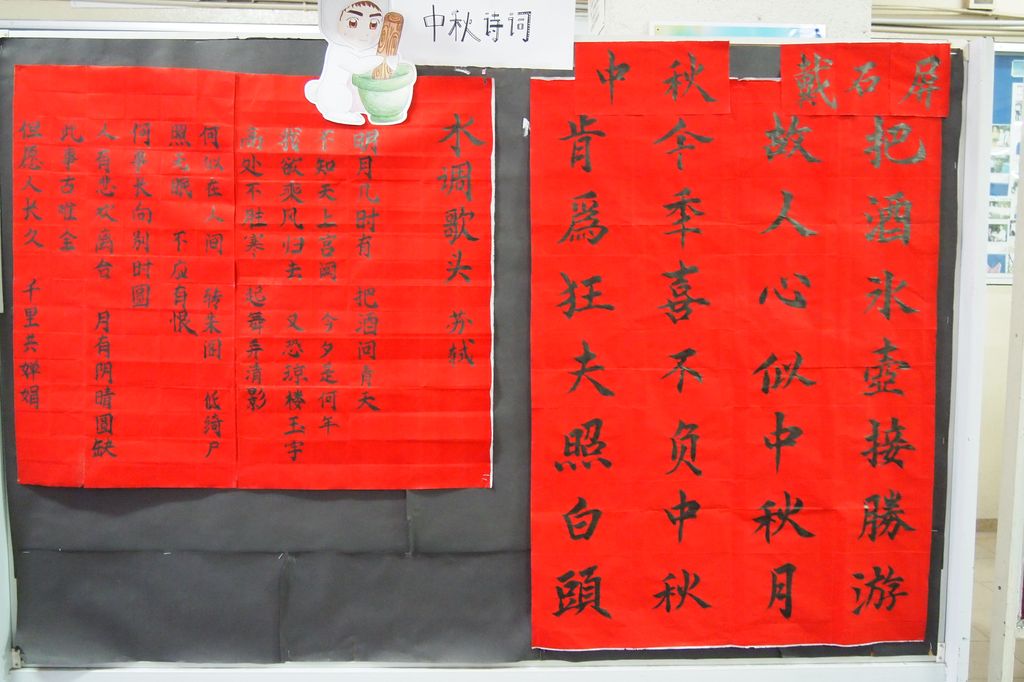 中秋诗词
中秋 戴石屏
把酒氷壺接勝游
故人心似中秋月
今季喜不负中秋
肯爲狂夫照白頭
水调歌头 苏轼
明月几时有 把酒问青天
不知天上宫阙 今夕是何年
我欲乘风归去 又恐琼楼玉宇
高处不胜寒 起舞弄清影
何似在人间 转朱阁 低绮户
照无眠 不应有恨
何事长向别时圆
人有悲欢离合 月有阴晴圆缺
此事古难全
但愿人长久 千里共婵娟